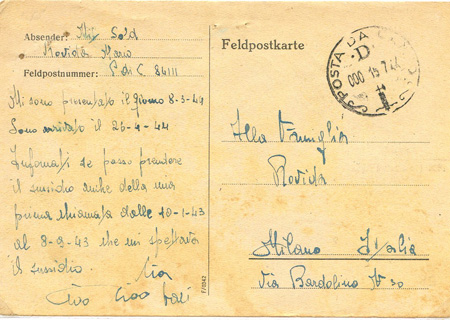 Absender: Sold
Rovida Mario
Feldpostnummer: P. di C. 84111
Mi sono presentato il giorno 8-3-44
Sono arrivato il 26-4-44
Informati se posso prendere
il sussidio anche della mia
prima chiamata dalle 20-1-43
al 8-9-43 che mi spettava
il sussidio.
Ciao Ciao baci
F/0942
Feldpostkarte
POSTA DA CAMPO
D
000 15 7 44
Alla Famiglia
Rovida
Milano Italia
Via Bardolino N 30